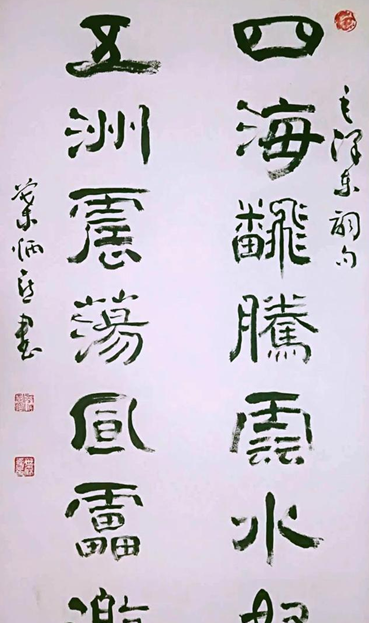 毛澤東詞句
四海飜騰雲水怒
五洲震蕩風雷激
葉炳喜書